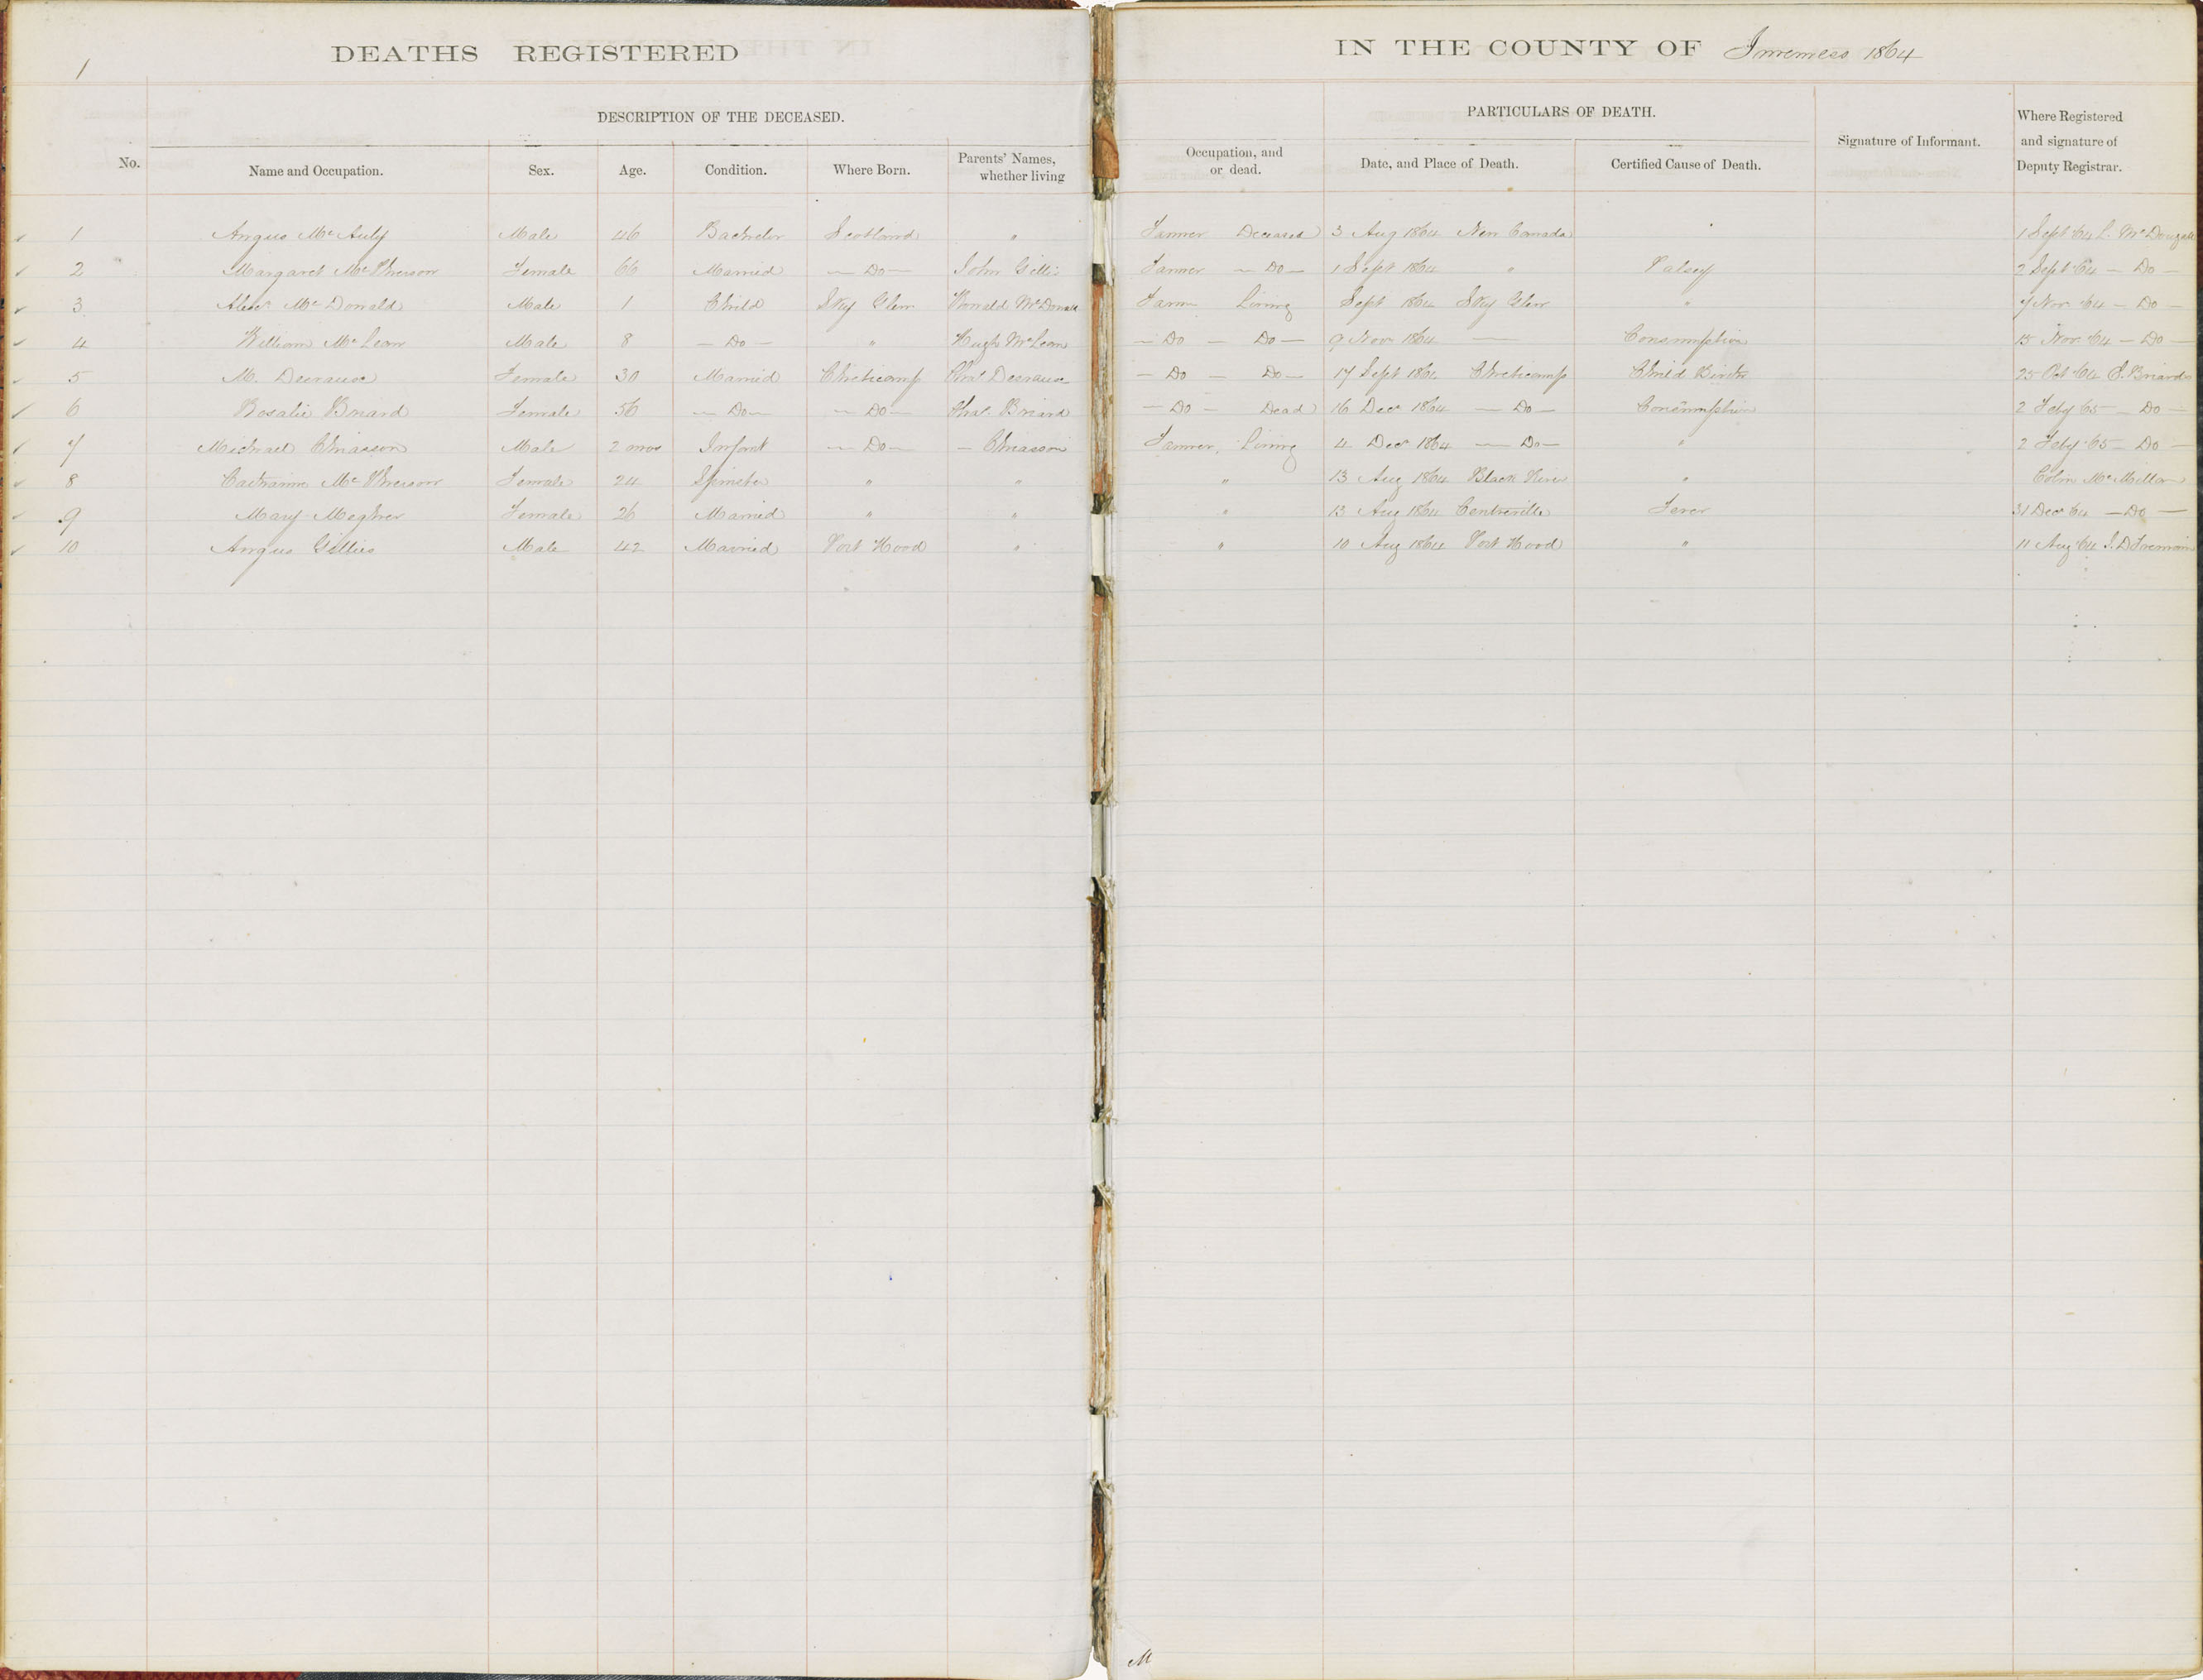 1
DEATHS REGISTERED IN THE COUNTY OF Inverness 1864
DESCRIPTION OF THE DECEASED. PARTICULARS OF DEATH.
No. Name and Occupation. Sex. Age. Condition. Where Born. Parents' Names, whether living Occupation, and or dead. Date, and Place of Death. Certified Cause of Death. Signature of Informant. Where Registered and signature of Deputy Registrar.
1 Angus Mc Auly Male 46 Bachelor Scotland " Farmer Deceased 3 Aug 1864 New Canada " 1 Sept 64 L. McDougall
2 Margaret Mc Pherson Female 66 Married — Do — John Gillis Farmer — Do — 1 Sept 1864 " Palsey 2 Sept 64 — Do —
3 Alexr Mc Donald Male 1 Child Sky Glen Donald McDonald Farm Living Sept 1864 Sky Glen " 7 Nov 64 — Do —
4 William Mc Lean Male 8 — Do — " Hugh McLean — Do — Do — 9 Nov 1864 — Consumption 15 Nov 64 — Do —
5 M. Deeraux Female 30 Married Cheticamp Deeraux — Do — Do — 17 Sept 1864 Cheticamp Child Birth 25 Oct 64 Briard
6 Rosalie Briard Female 56 — Do — — Do — Chas. Briard — Do — Dead 16 Decr 1864 — Do — Consumption 2 Feby 65 — Do —
7 Michael Chiasson Male 2 mos Infant — Do — — Chiasson Farmer, Living 4 Decr 1864 — Do — " 2 Feby 65 — Do —
8 Catharine Mc Pherson Female 24 Spinster " " " 13 Aug 1864 Black River " Colin McMillan
9 Mary Megher Female 26 Married " " " 13 Aug 1864 Centreville Fever 31 Decr 64 — Do —
10 Angus Gillies Male 42 Married Port Hood " " 10 Aug 1864 Port Hood " 11 Aug 64 Tremain
M